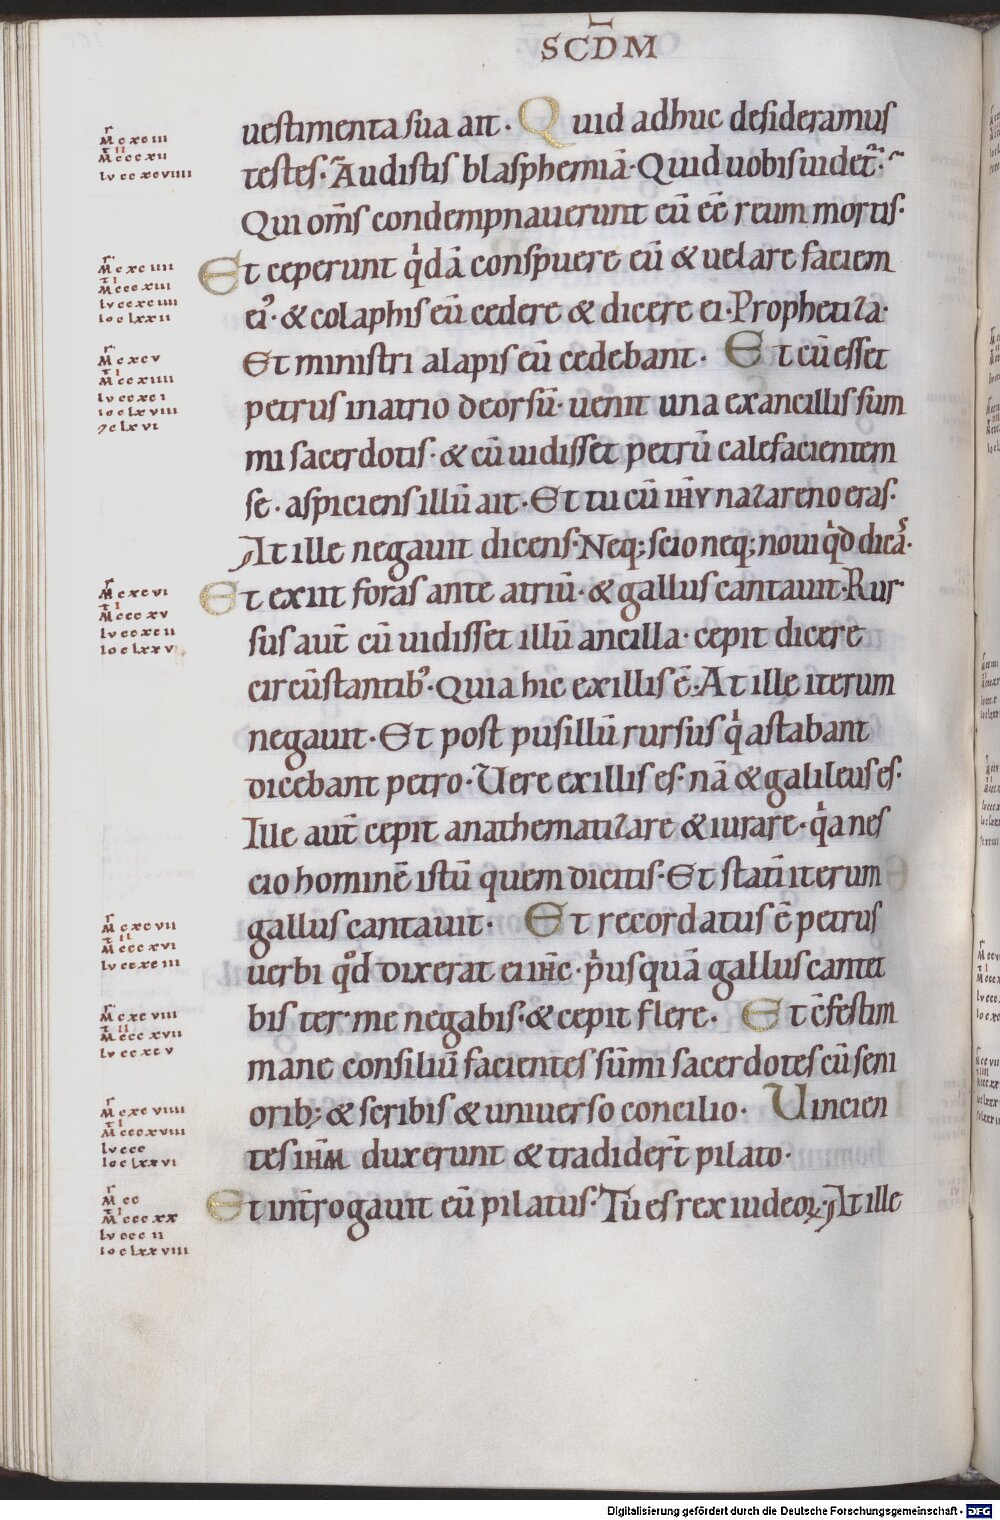 SCDM
uestimenta sua ait. Quid adhuc desideramus
testes. Audistis blasphemiā. Quid uobis uidet̄.
Qui om̄s condempnauerunt eū eē reum mortis.
Et ceperunt qͥdā conspuere eū & uelare faciem
eiꝰ. & colaphis eū cedere & dicere ei. Prophetiza.
Et ministri alapis eū cedebant. Et cū esset
petrus in atrio deorsū. uenit una ex ancillis sum
mi sacerdotis. & cū uidisset petrū calefacientem
se. aspiciens illū ait. Et tu cū ihū nazareno eras.
At ille negauit dicens. Neq; scio neq; noui qͥd dicas.
Et exiit foras ante atriū. & gallus cantauit. Rur
sus aut̄ cū uidisset illū ancilla. cepit dicere
circūstantibꝰ. Quia hic ex illis ē. At ille iterum
negauit. Et post pusillū rursus qͥ astabant
dicebant petro. Uere ex illis es. nā & galileus es.
Ille aut̄ cepit anathematizare & iurare. qͥa nes
cio hominē istū quem dicitis. Et stati iterum
gallus cantauit. Et recordatus ē petrus
uerbi qͦd dixerat ei ihc̄. pͥus quā gallus cantet
bis ter me negabis. & cepit flere. Et c̄festim
mane consiliū facientes sūmi sacerdotes cū seni
orib; & scribis & uniuerso concilio. Uincien
tes ihm̄ duxerunt & tradider̄t pilato.
Et int̄rogauit eū pilatus. Tu es rex iudeoꝝ. At ille
M cxciii
M cccxii
lu ccxcviiii
M cxciiii
M cccxiii
lu ccxciiii
io clxxii
M cxcv
M cccxiiii
lu ccxci
io clxviii
clxvi
M cxcvi
M cccxv
lu ccxcii
io clxxv
M cxcvii
M cccxvi
lu ccxciii
M cxcviii
M cccxvii
lu ccxcv
M cxcviiii
M cccxviii
lu ccc
io clxxvi
M cc
M cccxx
lu cccii
io clxxviii
Digitalisierung gefördert durch die Deutsche Forschungsgemeinschaft - DFG